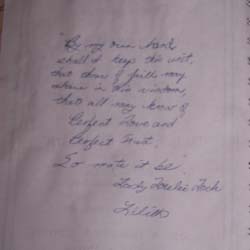 "By my own hand
shall I keep the writ,
that those I
share in this wisdom,
that all may know of
Perfect Love and
Perfect Trust.
So mote it be."
Lady
Lilith